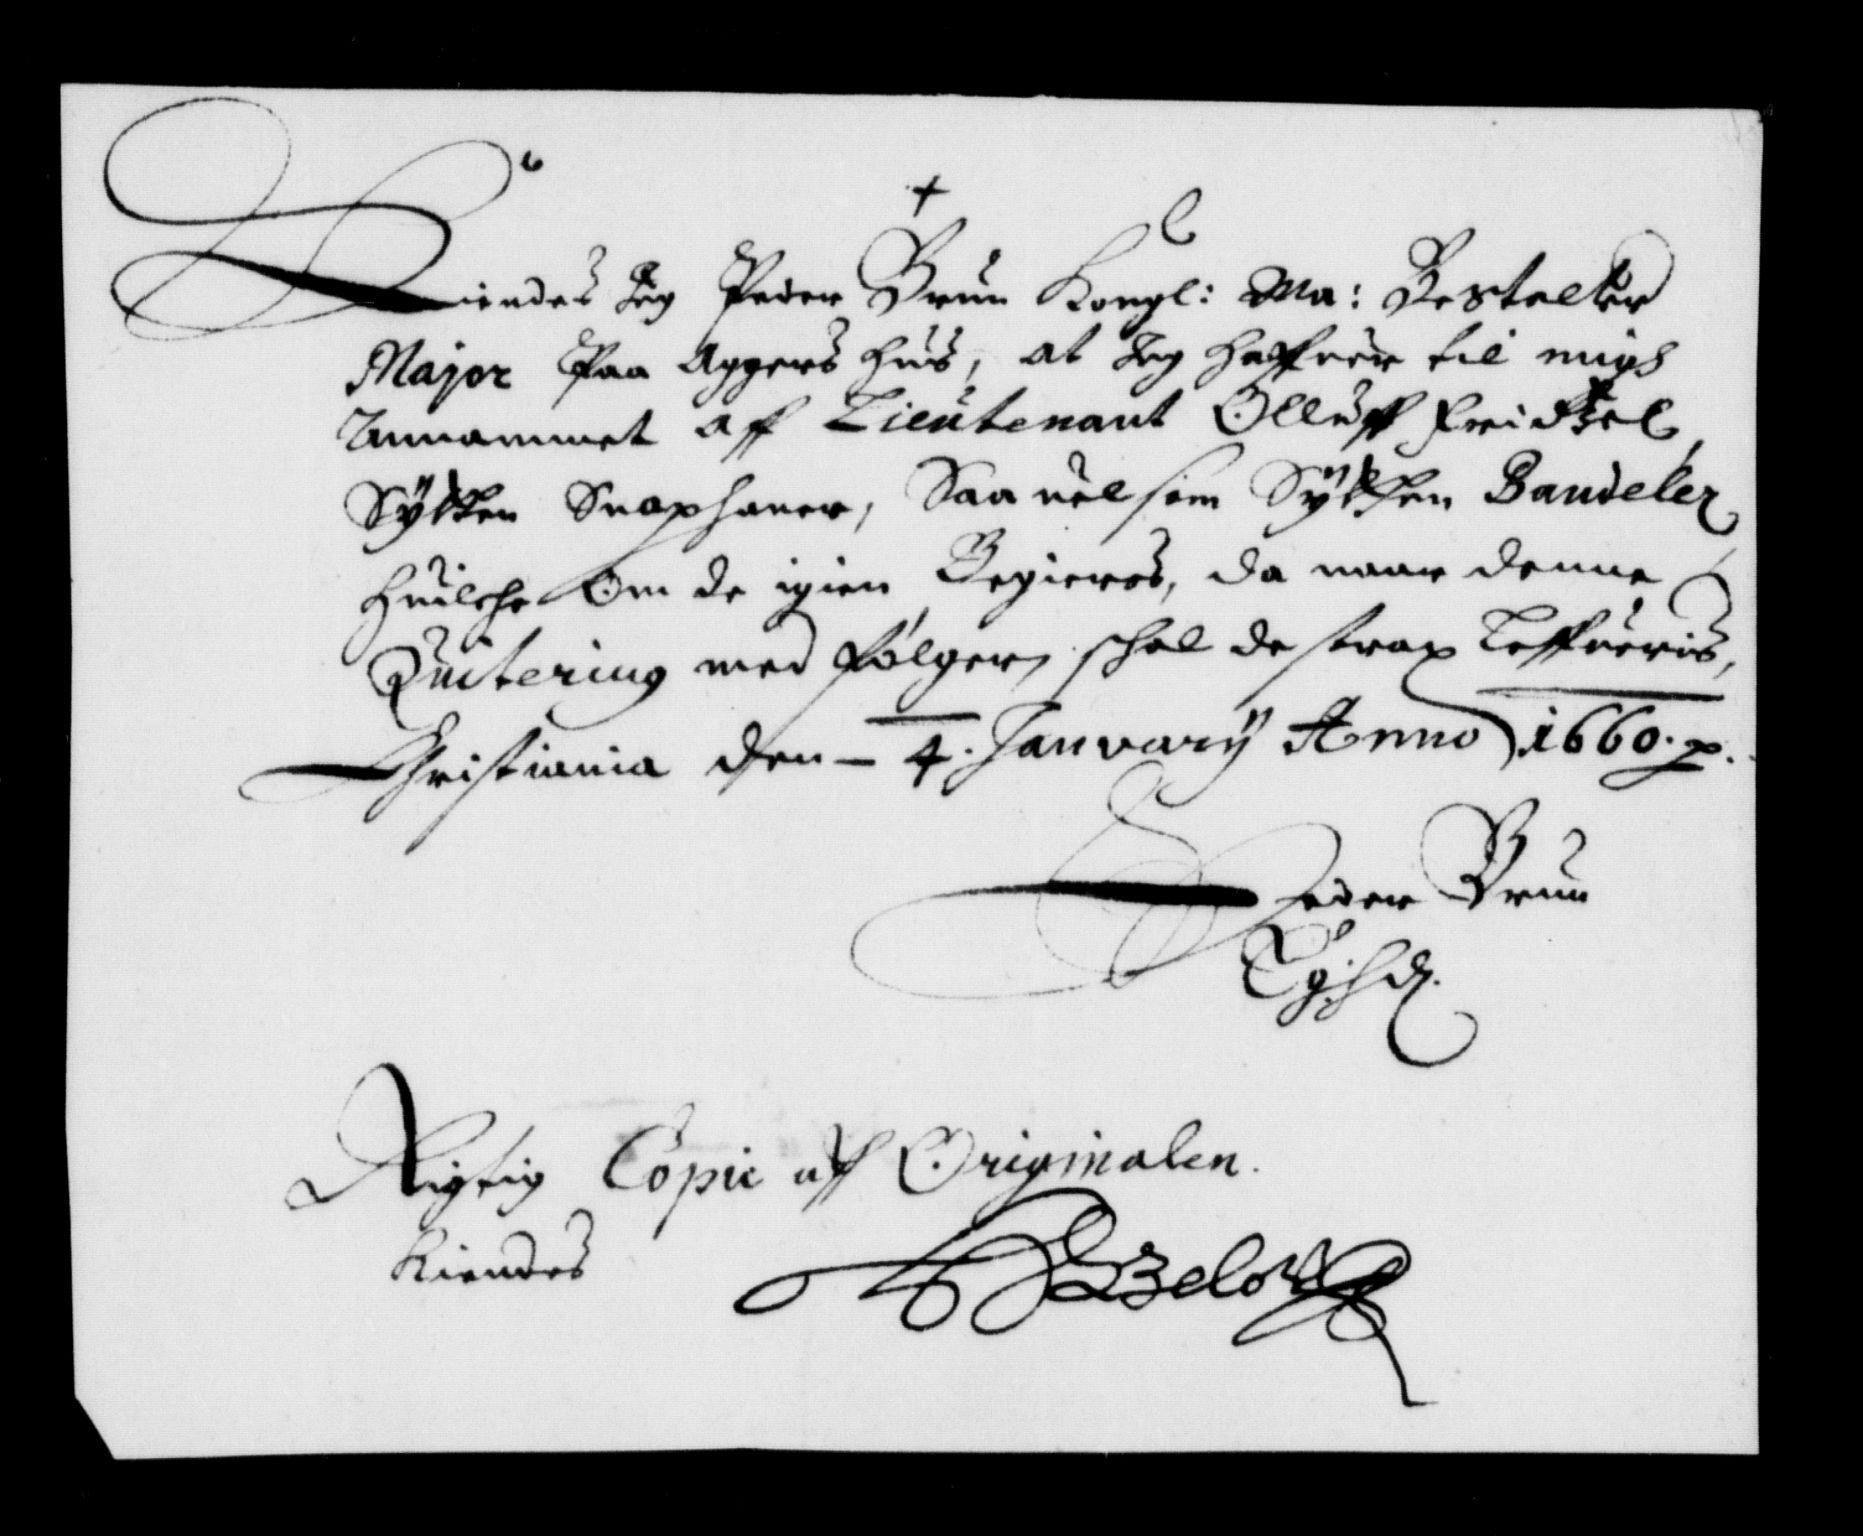 +
Kiendes Jeg Peder Brun Kongl: Ma: Bestalter
Major Paa Aggers Huus, at Jeg Haffuer til migh
Annammet aff Lieutenant Olluff
Sÿtten Snaphaner, Saa uel som Sÿtten Bandeler
Huilche Om de igien Begieres, da naar denne
Quitering med følger, schal de strax Leffueris,
Christiania den 4. Januarÿ Anno 1660.
Peder Brun
Egh.
Rigtig Copie aff Originalen.
Kiendes
Below